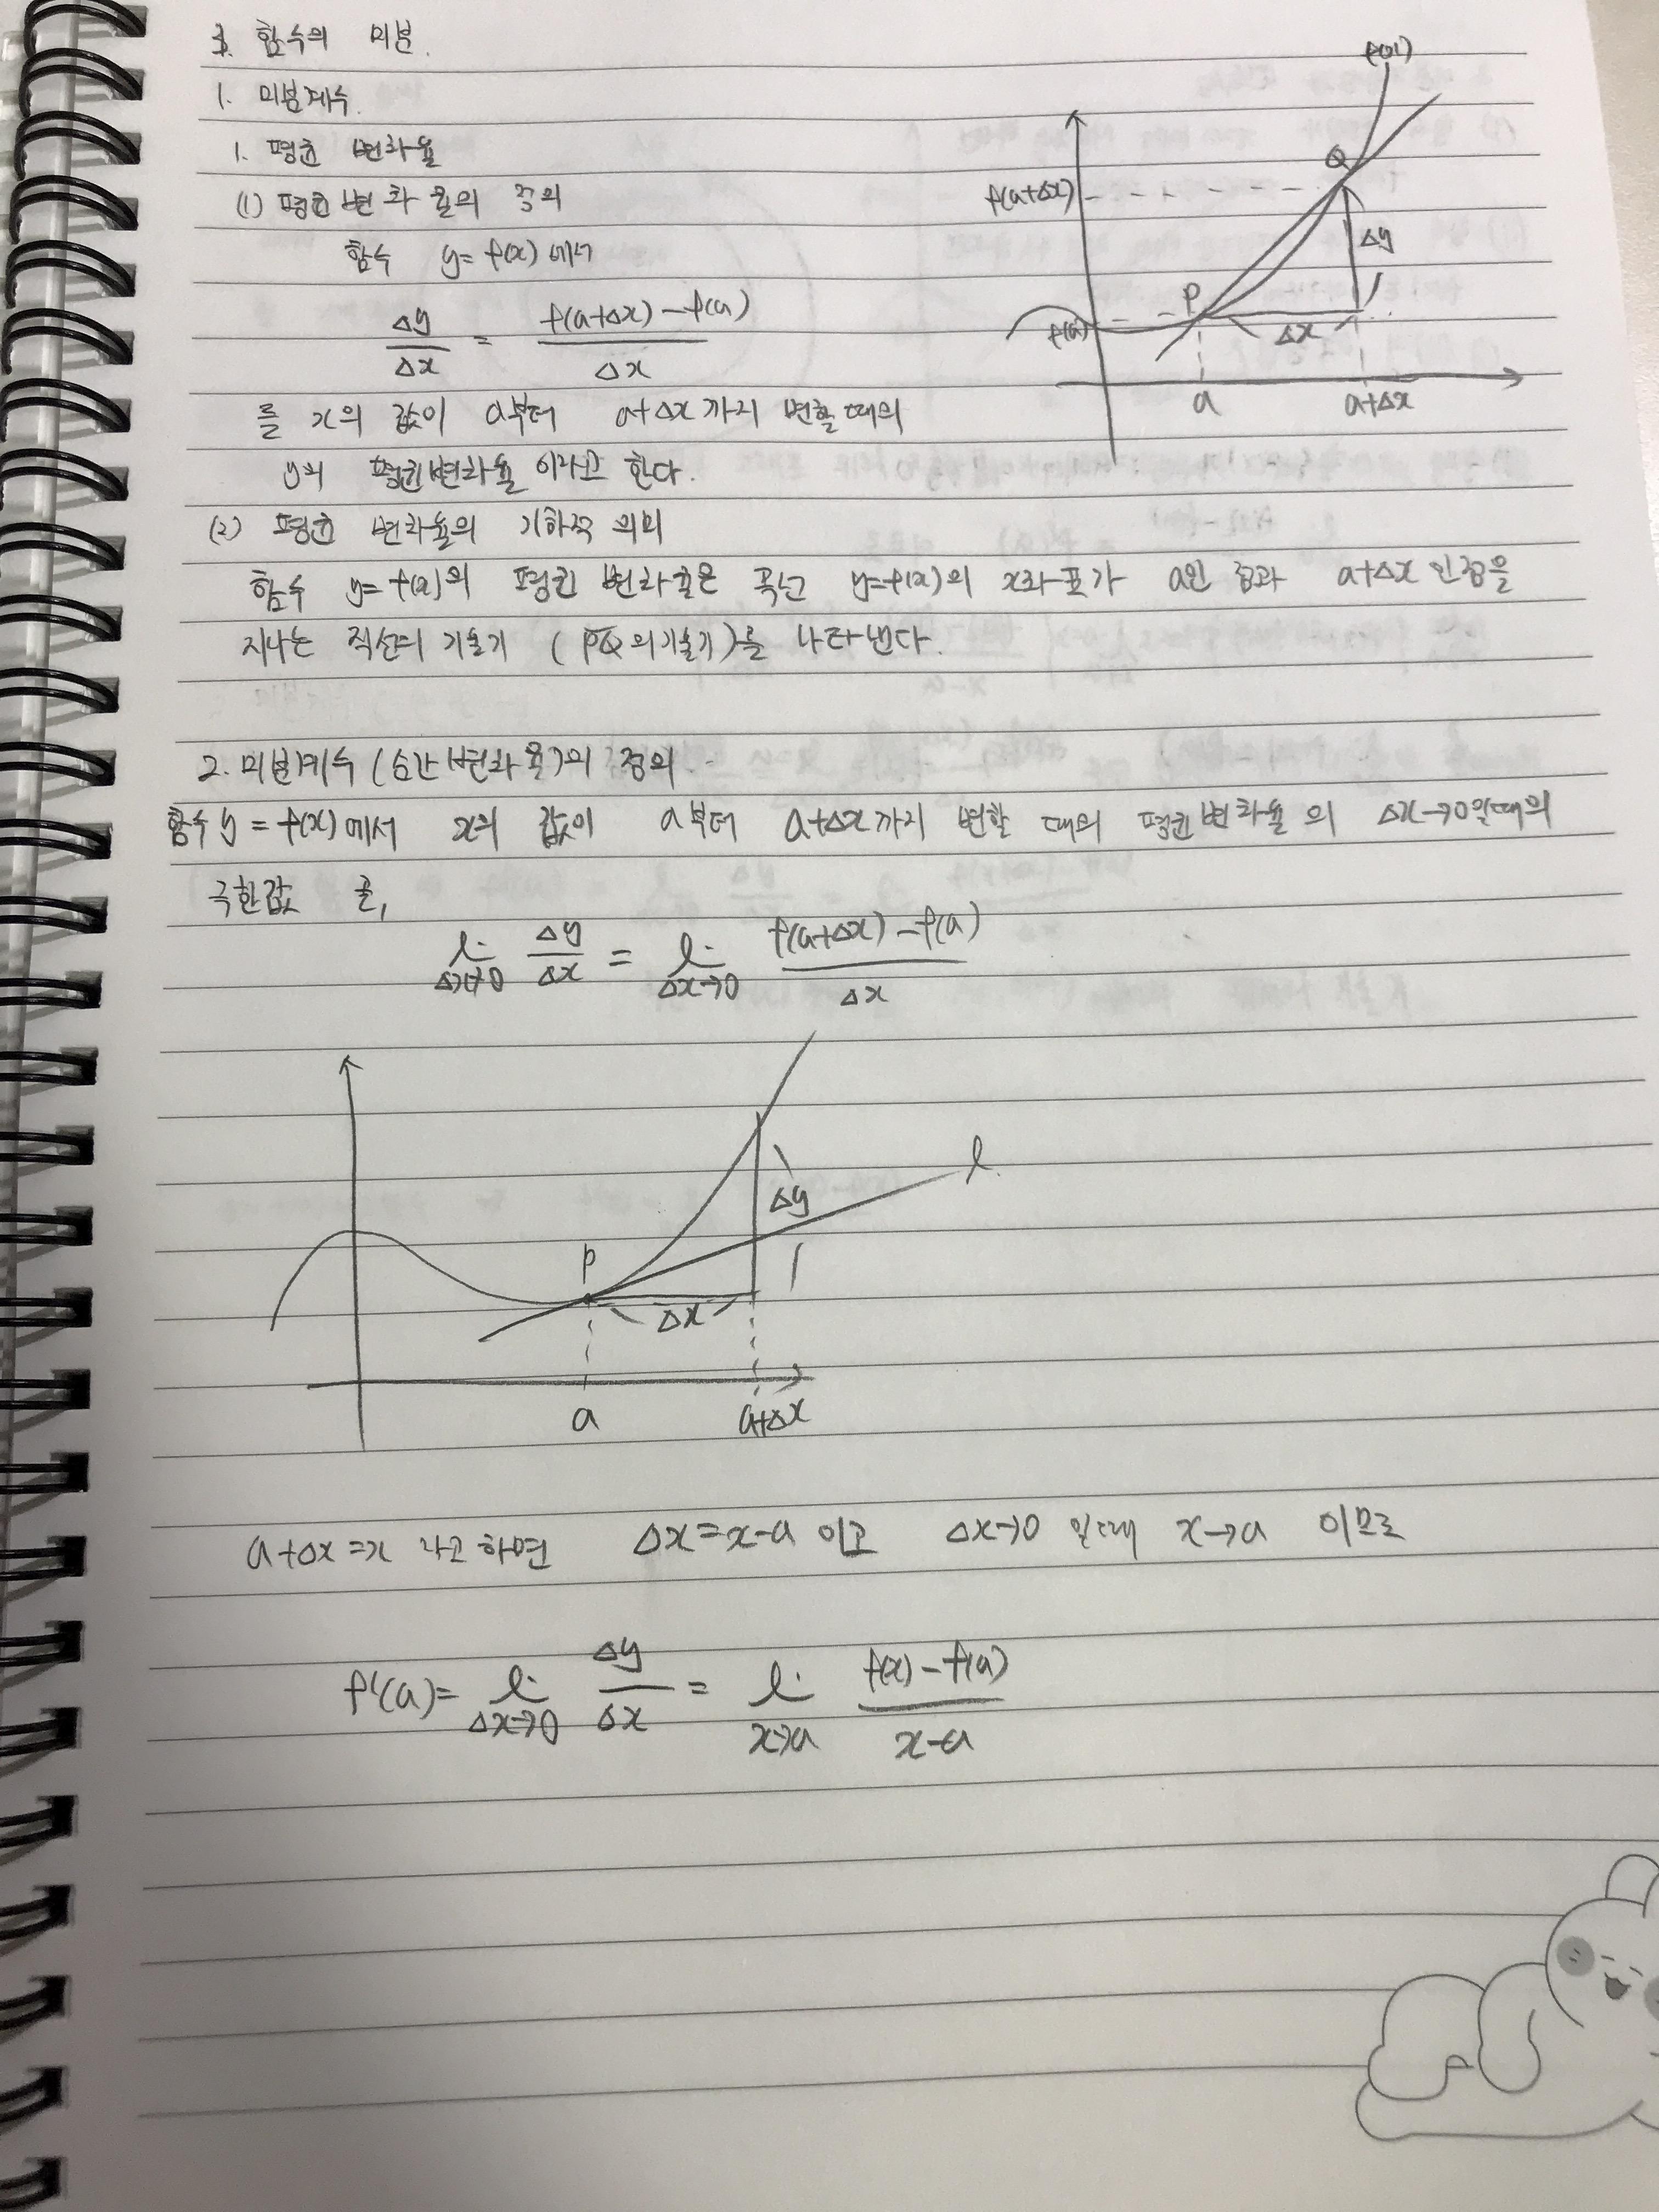 3. 함수의 미분.
1. 미분계수.
1. 평균 변화율
(1) 평균변화율의 정의
함수 y=f(x)에서
Δy/Δx = f(a+Δx)-f(a)/Δx
를 x의 값이 a부터 a+Δx까지 변할 때의
y의 평균변화율 이라고 한다.
f(x)
Q
f(a+Δx)
Δy
P
f(a)
Δx
a a+Δx
(2) 평균 변화율의 기하적 의미
함수 y=f(x)의 평균 변화율은 곡선 y=f(x)의 x좌표가 a인 점과 a+Δx인점을
지나는 직선의 기울기 (PQ의기울기)를 나타낸다.
2. 미분계수(순간변화율)의 정의.
함수 y=f(x)에서 x의 값이 a부터 a+Δx까지 변할 때의 평균변화율의 Δx→0일때의
극한값 을,
li Δx→0 Δy/Δx = li Δx→0 f(a+Δx)-f(a)/Δx
l.
Δy
P
Δx
a a+Δx
a+Δx=x 라고 하면 Δx=x-a 이고 Δx→0 일때 x→a 이므로
f'(a)= li Δx→0 Δy/Δx = li x→a f(x)-f(a)/x-a